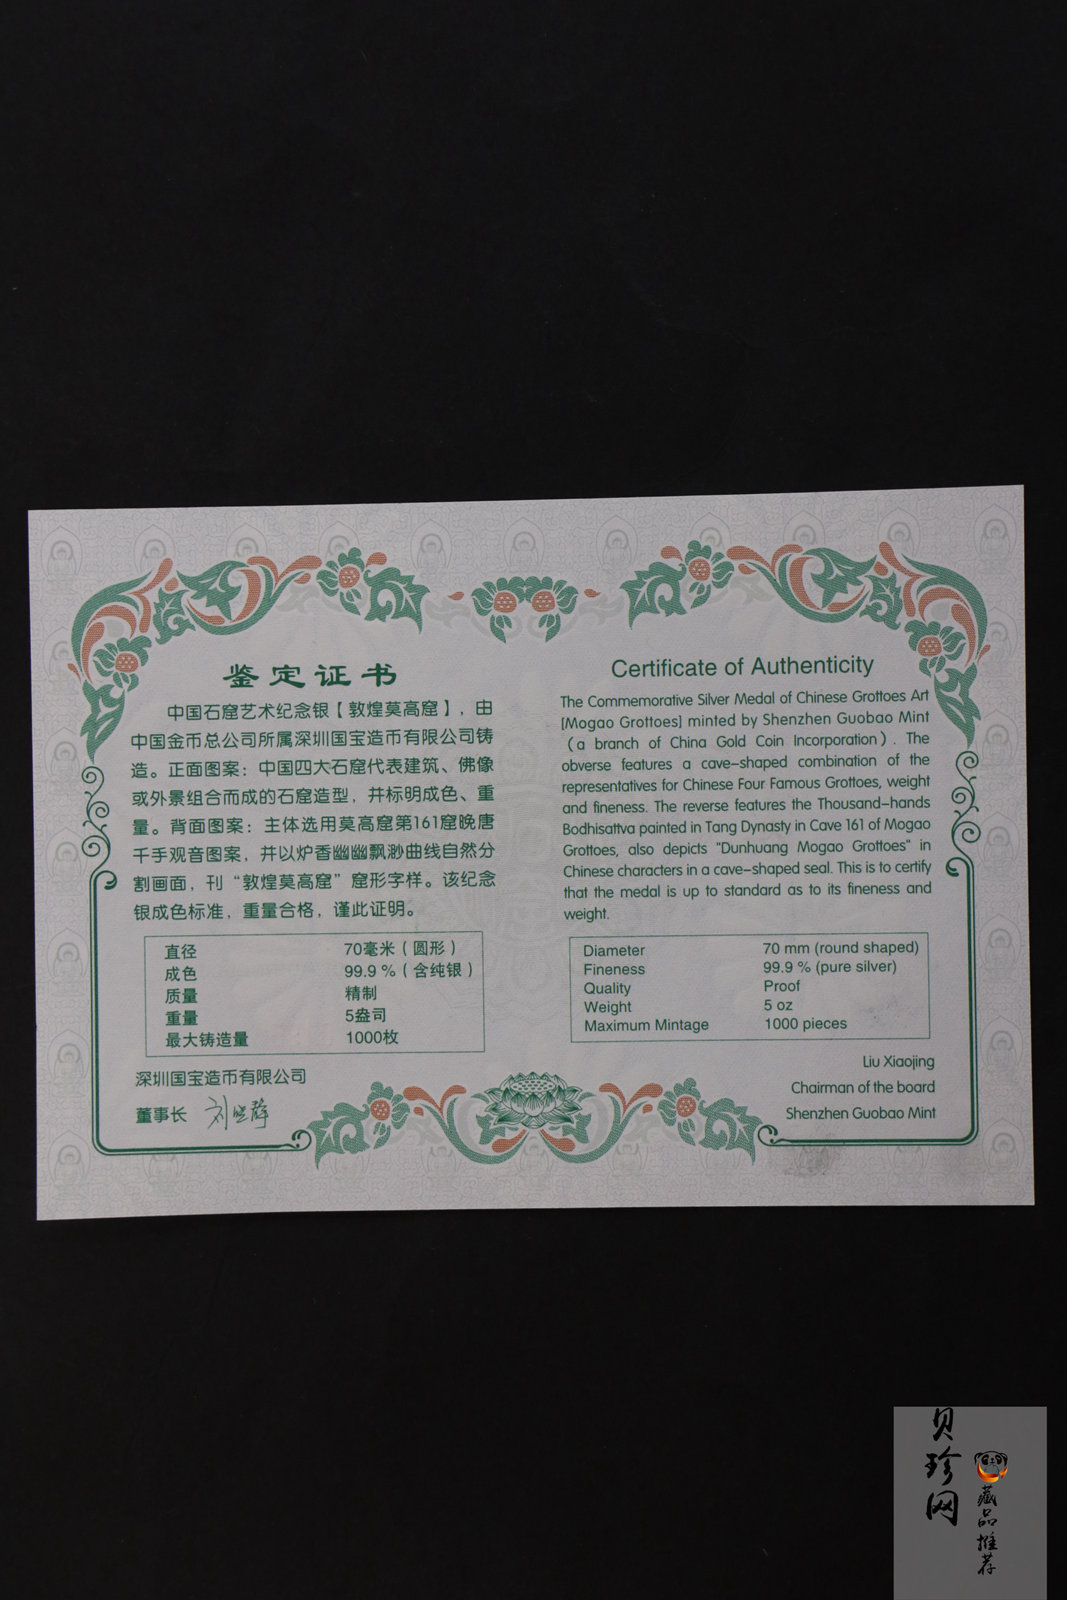 鉴定证书
中国石窟艺术纪念银【敦煌莫高窟】，由
中国金币总公司所属深圳国宝造币有限公司铸
造。正面图案：中国四大石窟代表建筑、佛像
或外景组合而成的石窟造型，并标明成色、重
量。背面图案：主体选用莫高窟第161窟晚唐
千手观音图案，并以炉香幽幽飘渺曲线自然分
割画面，刊“敦煌莫高窟”窟形字样。该纪念
银成色标准，重量合格，谨此证明。
直径 70毫米（圆形）
成色 99.9％（含纯银）
质量 精制
重量 5盎司
最大铸造量 1000枚
深圳国宝造币有限公司
董事长 刘晓静
Certificate of Authenticity
The Commemorative Silver Medal of Chinese Grottoes Art
[Mogao Grottoes] minted by Shenzhen Guobao Mint
（a branch of China Gold Coin Incorporation）. The
obverse features a cave-shaped combination of the
representatives for Chinese Four Famous Grottoes, weight
and fineness. The reverse features the Thousand-hands
Bodhisattva painted in Tang Dynasty in Cave 161 of Mogao
Grottoes, also depicts "Dunhuang Mogao Grottoes" in
Chinese characters in a cave-shaped seal. This is to certify
that the medal is up to standard as to its fineness and
weight.
Diameter 70 mm (round shaped)
Fineness 99.9 % (pure silver)
Quality Proof
Weight 5 oz
Maximum Mintage 1000 pieces
Liu Xiaojing
Chairman of the board
Shenzhen Guobao Mint
贝珍网
藏品推荐